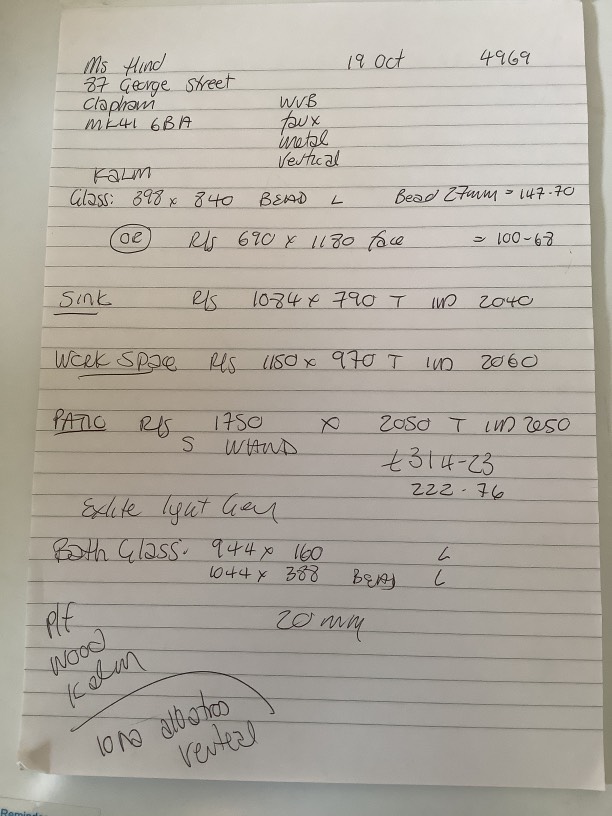 Ms Hind 19 Oct 4969
37 George Street
Clapham WVB
MK41 6BA faux
metal
vertical
Kalm
Glass: 398 x 840 BEAD L Bead 27mm = 147.70
OR R/s 690 x 1180 face = 100-68
Sink R/s 1084 x 790 T 2040
Work Space R/s 1150 x 970 T 2060
PATIO R/s 1750 x 2050 T 2050
S WAND £314-23
222.76
light Grey
Both Glass: 944 x 160 L
1044 x 388 BEAD L
P/f 20 mm
Wood
Kalm
albatros
vertical